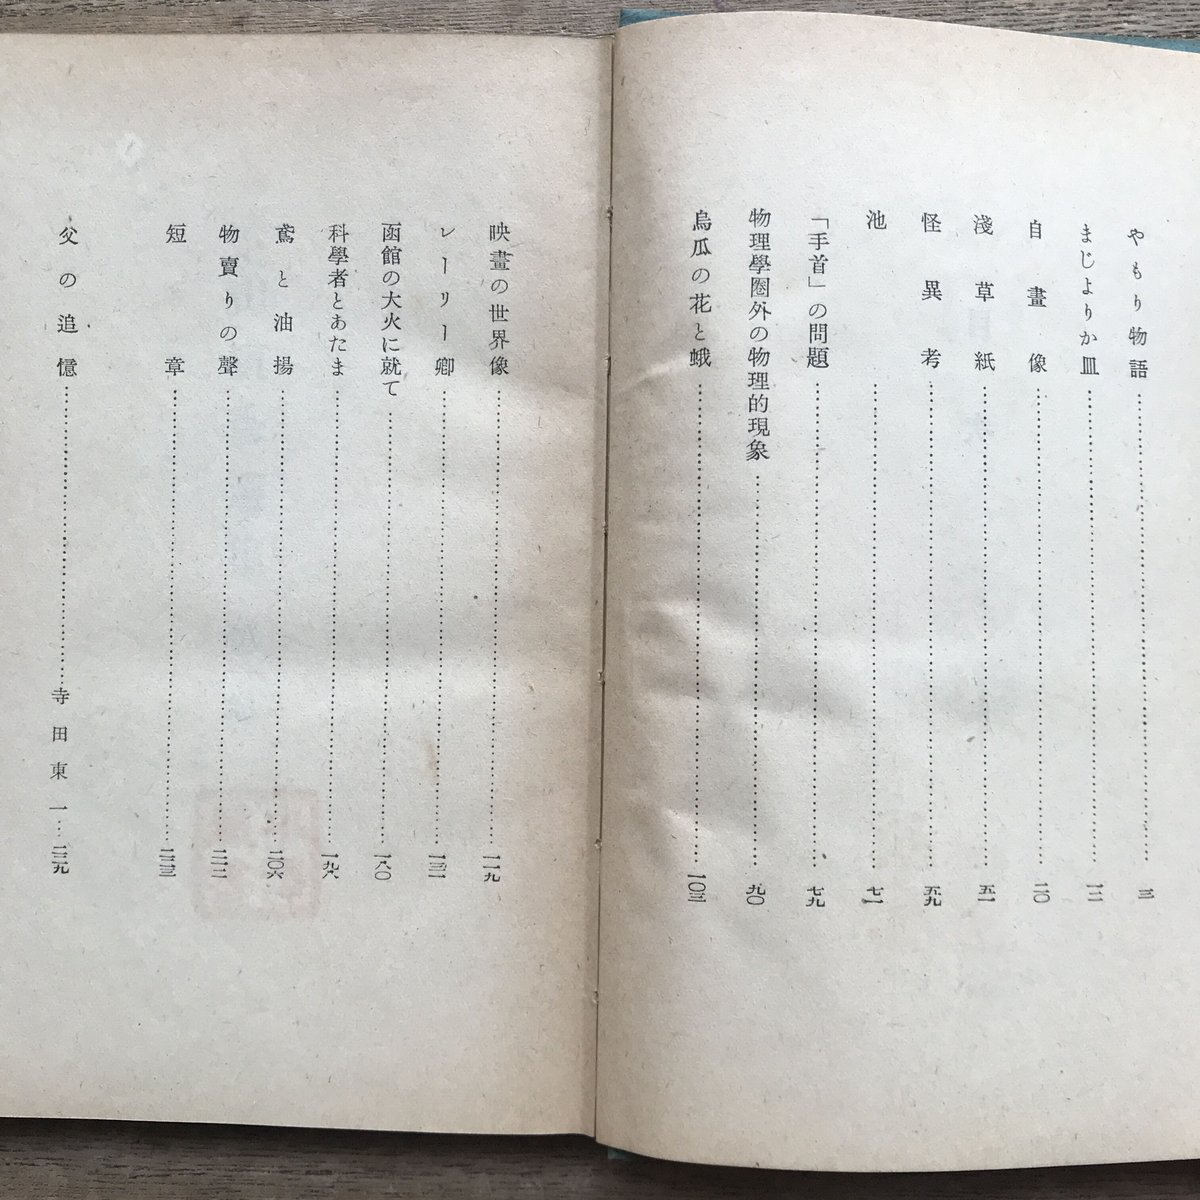 やもり物語……三
まじよりか皿……一二
自畫像……二〇
淺草紙……五一
怪異考……五九
池……七一
「手首」の問題……七九
物理學圈外の物理的現象……九〇
烏瓜の花と蛾……一〇三
映畫の世界像……一一九
レーリー卿……一三一
函館の大火に就て……一八〇
科學者とあたま……一九八
鳶と油揚……二〇六
物賣りの聲……二一三
短章……二二三
父の追憶……寺田東一…二三九